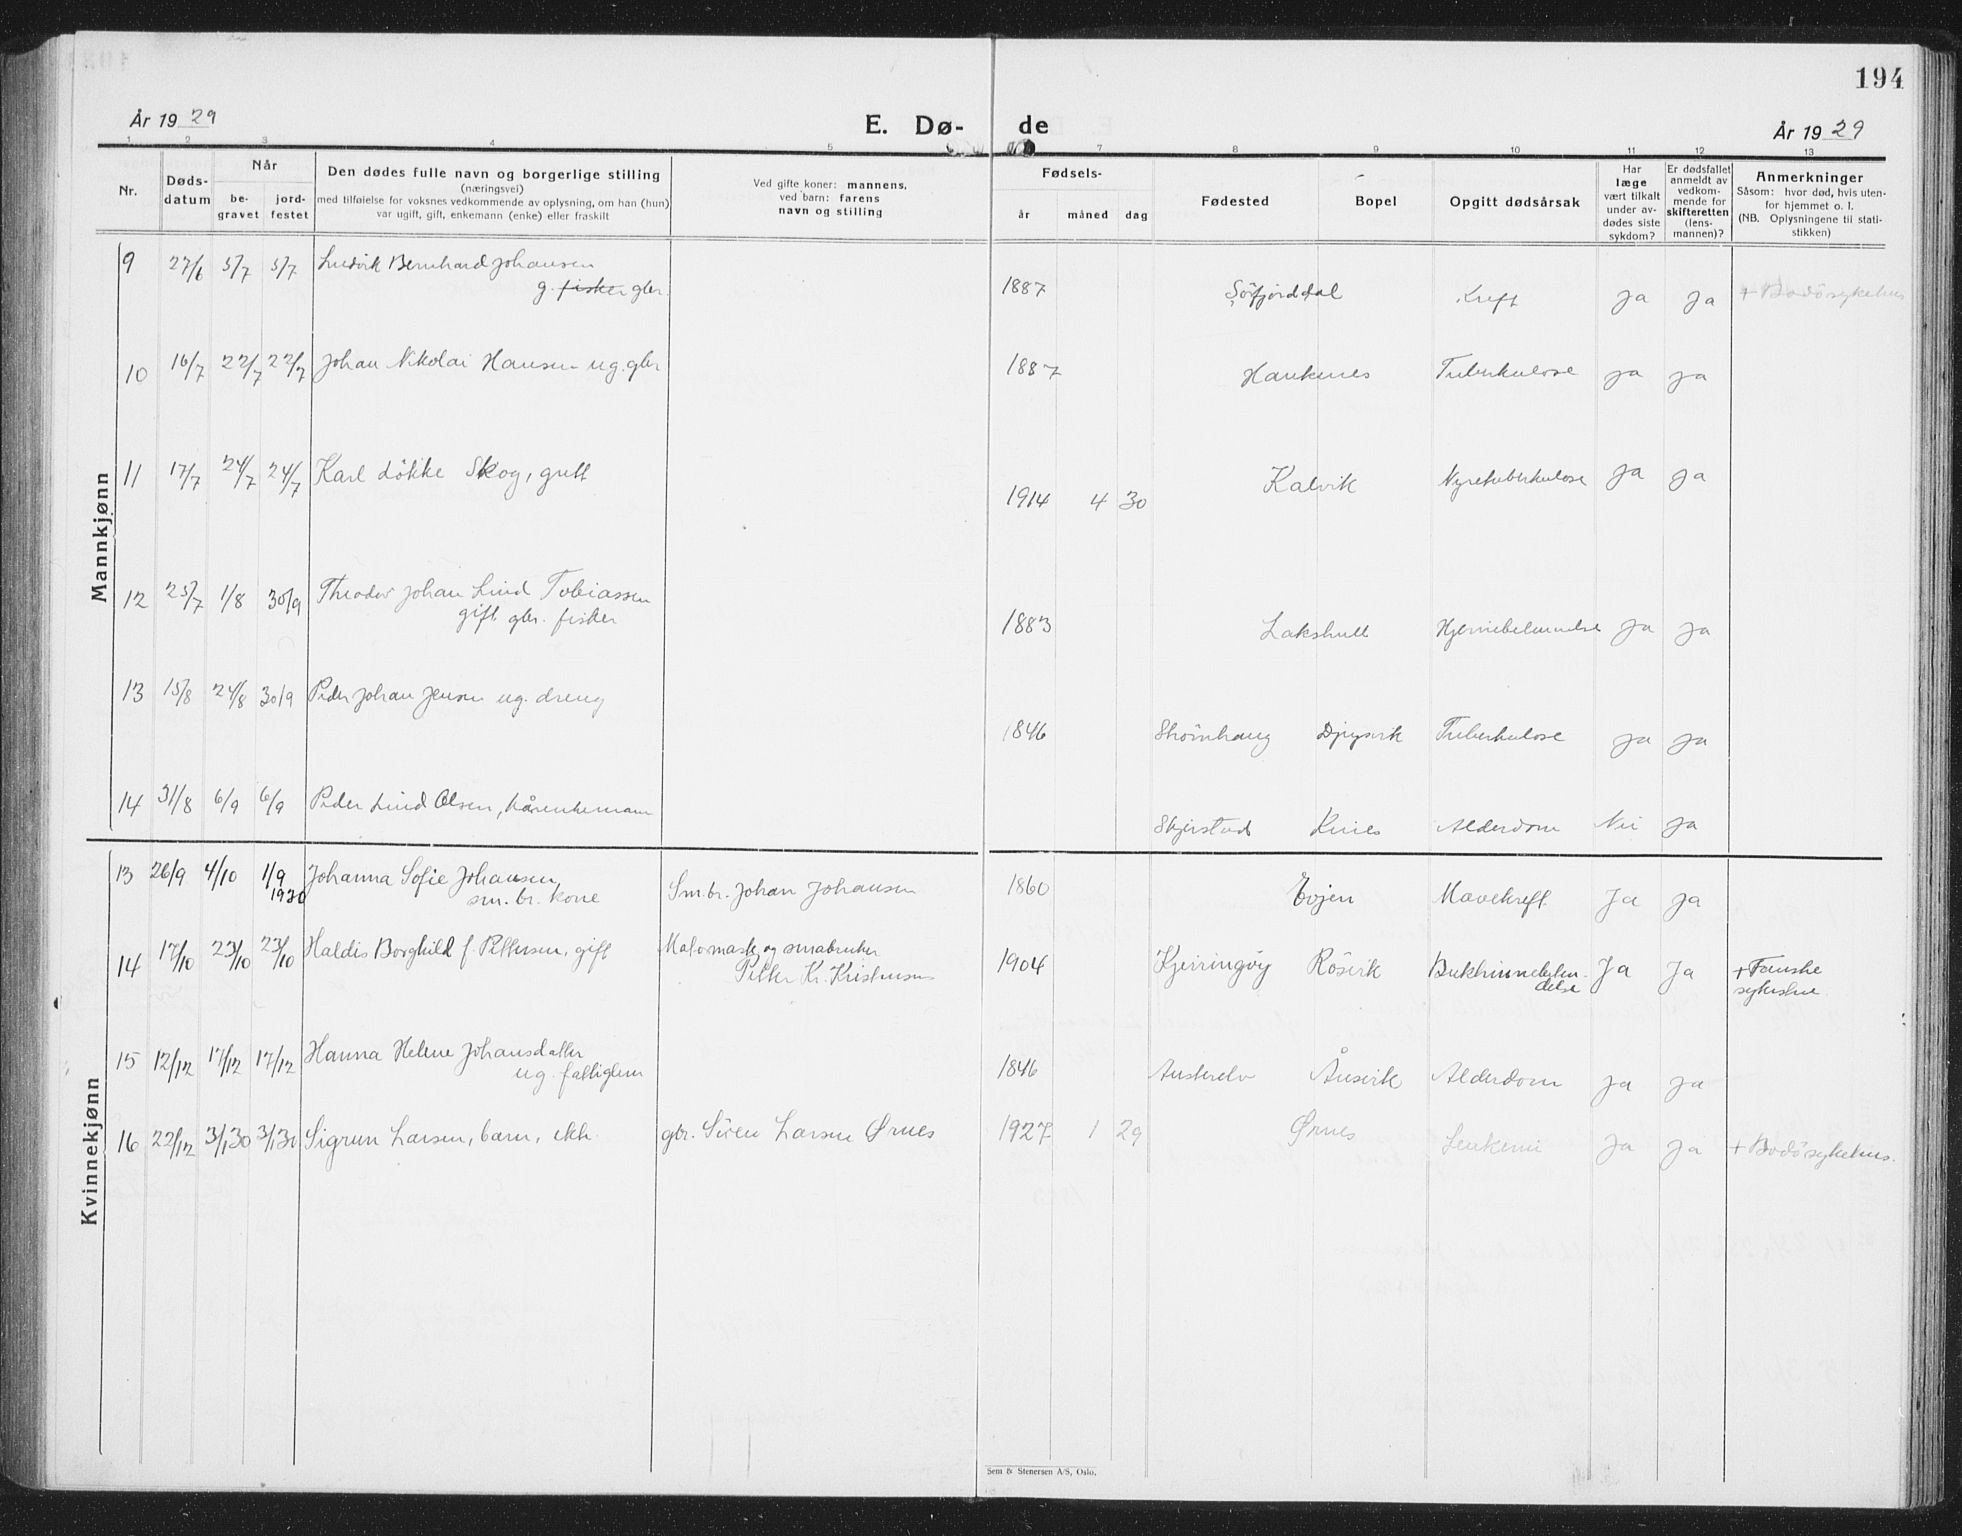 194
År 1929
E. Dø-
de
År 1929
1 2 3 4 5 7 8 9 10 11 12 13
Nr.
Døds-
datum
Når
be-
gravet
jord-
festet
Den dødes fulle navn og borgerlige stilling
(næringsvei)
med tilføielse for voksnes vedkommende av oplysning, om han (hun)
var ugift, gift, enkemann (enke) eller fraskilt
Ved gifte koner: mannens,
ved barn: farens
navn og stilling
Fødsels-
år måned dag
Fødested
Bopel
Opgitt dødsårsak
Har
læge
vært tilkalt
under av-
dødes siste
sykdom?
Er dødsfallet
anmeldt av
vedkom-
mende for
skifteretten
(lens-
mannen)?
Anmerkninger
Såsom: hvor død, hvis uten-
for hjemmet o. l.
(NB. Oplysningene til stati-
stikken)
Mannkjønn
9 27/6 5/7 5/7 Ludvik Bernhard Johansen
g. fisker gbr.
1887 Sörfjorddal Kreft Ja Ja + Bodö sykehus
10 16/7 22/7 22/7 Johan Nikolai Hansen ug. gbr
1887 Haukenes Tuberkulose Ja Ja
11 17/7 24/7 24/7 Karl Lökke Skog, gutt
1914 4 30 Kalvik Nyretuberkulose Ja Ja
12 25/7 1/8 30/9 Theodor Johan Lind Tobiassen
gift gbr. fisker
1883 Lakshull Hjernebetennelse Ja Ja
13 15/8 24/8 30/9 Peder Johan Jensen ug. dreng
1846 Strömhaug Djupvik Tuberkulose Ja Ja
14 31/8 6/9 6/9 Peder Lind Olsen, kårenkemann
Skjerstad Knes Alderdom Nei Ja
Kvinnekjønn
13 26/9 4/10 1/9 1930 Johanna Sofie Johansen
sm. br. kone
Sm.br. Johan Johansen
1860 Evjen Mavekreft Ja Ja
14 17/10 23/10 23/10 Haldis Borghild f. Pettersen, gift
Motormask. og småbruker
Petter Kr. Kristensen
1904 Kjerringöy Rösvik Bukhinnebeten-
delse
Ja Ja + Fauske
sykestue
15 12/12 17/12 17/12 Hanna Helene Johansdatter
ug. fattiglem
1846 Austerelv Ånsvik Alderdom Ja Ja
16 22/12 3/1 30 3/1 30 Sigrun Larsen, barn, ekt.
gbr. Sören Larsen Ørnes
1927 1 29 Ørnes Leukemi Ja Ja + Bodö sykehus.
Sem & Stenersen A/S, Oslo.